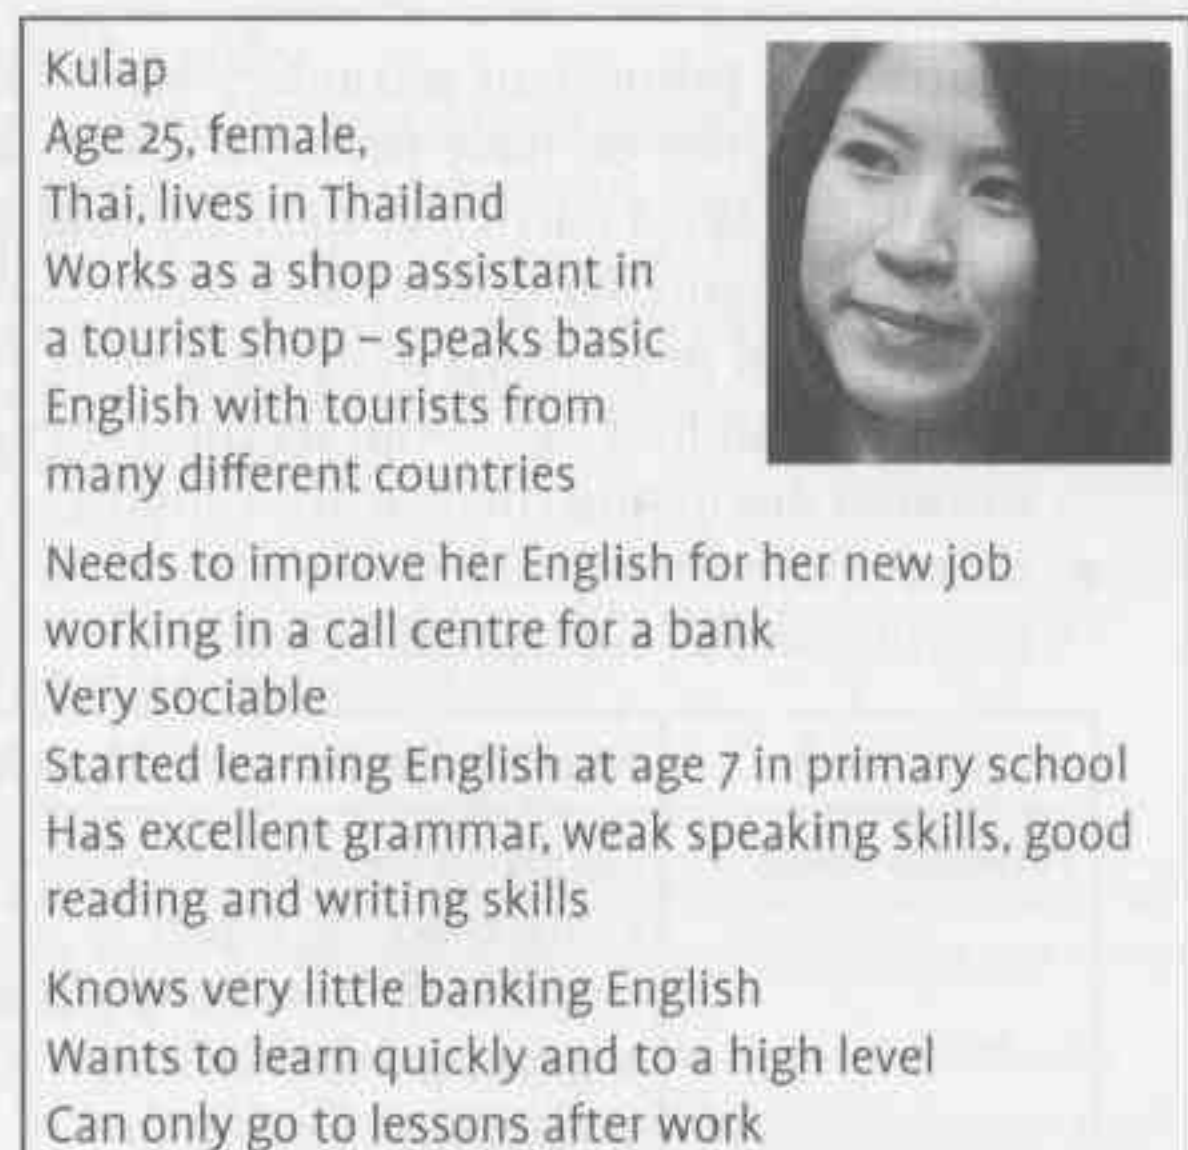 Kulap
Age 25, female,
Thai, lives in Thailand
Works as a shop assistant in
a tourist shop – speaks basic
English with tourists from
many different countries
Needs to improve her English for her new job
working in a call centre for a bank
Very sociable
Started learning English at age 7 in primary school
Has excellent grammar, weak speaking skills, good
reading and writing skills
Knows very little banking English
Wants to learn quickly and to a high level
Can only go to lessons after work